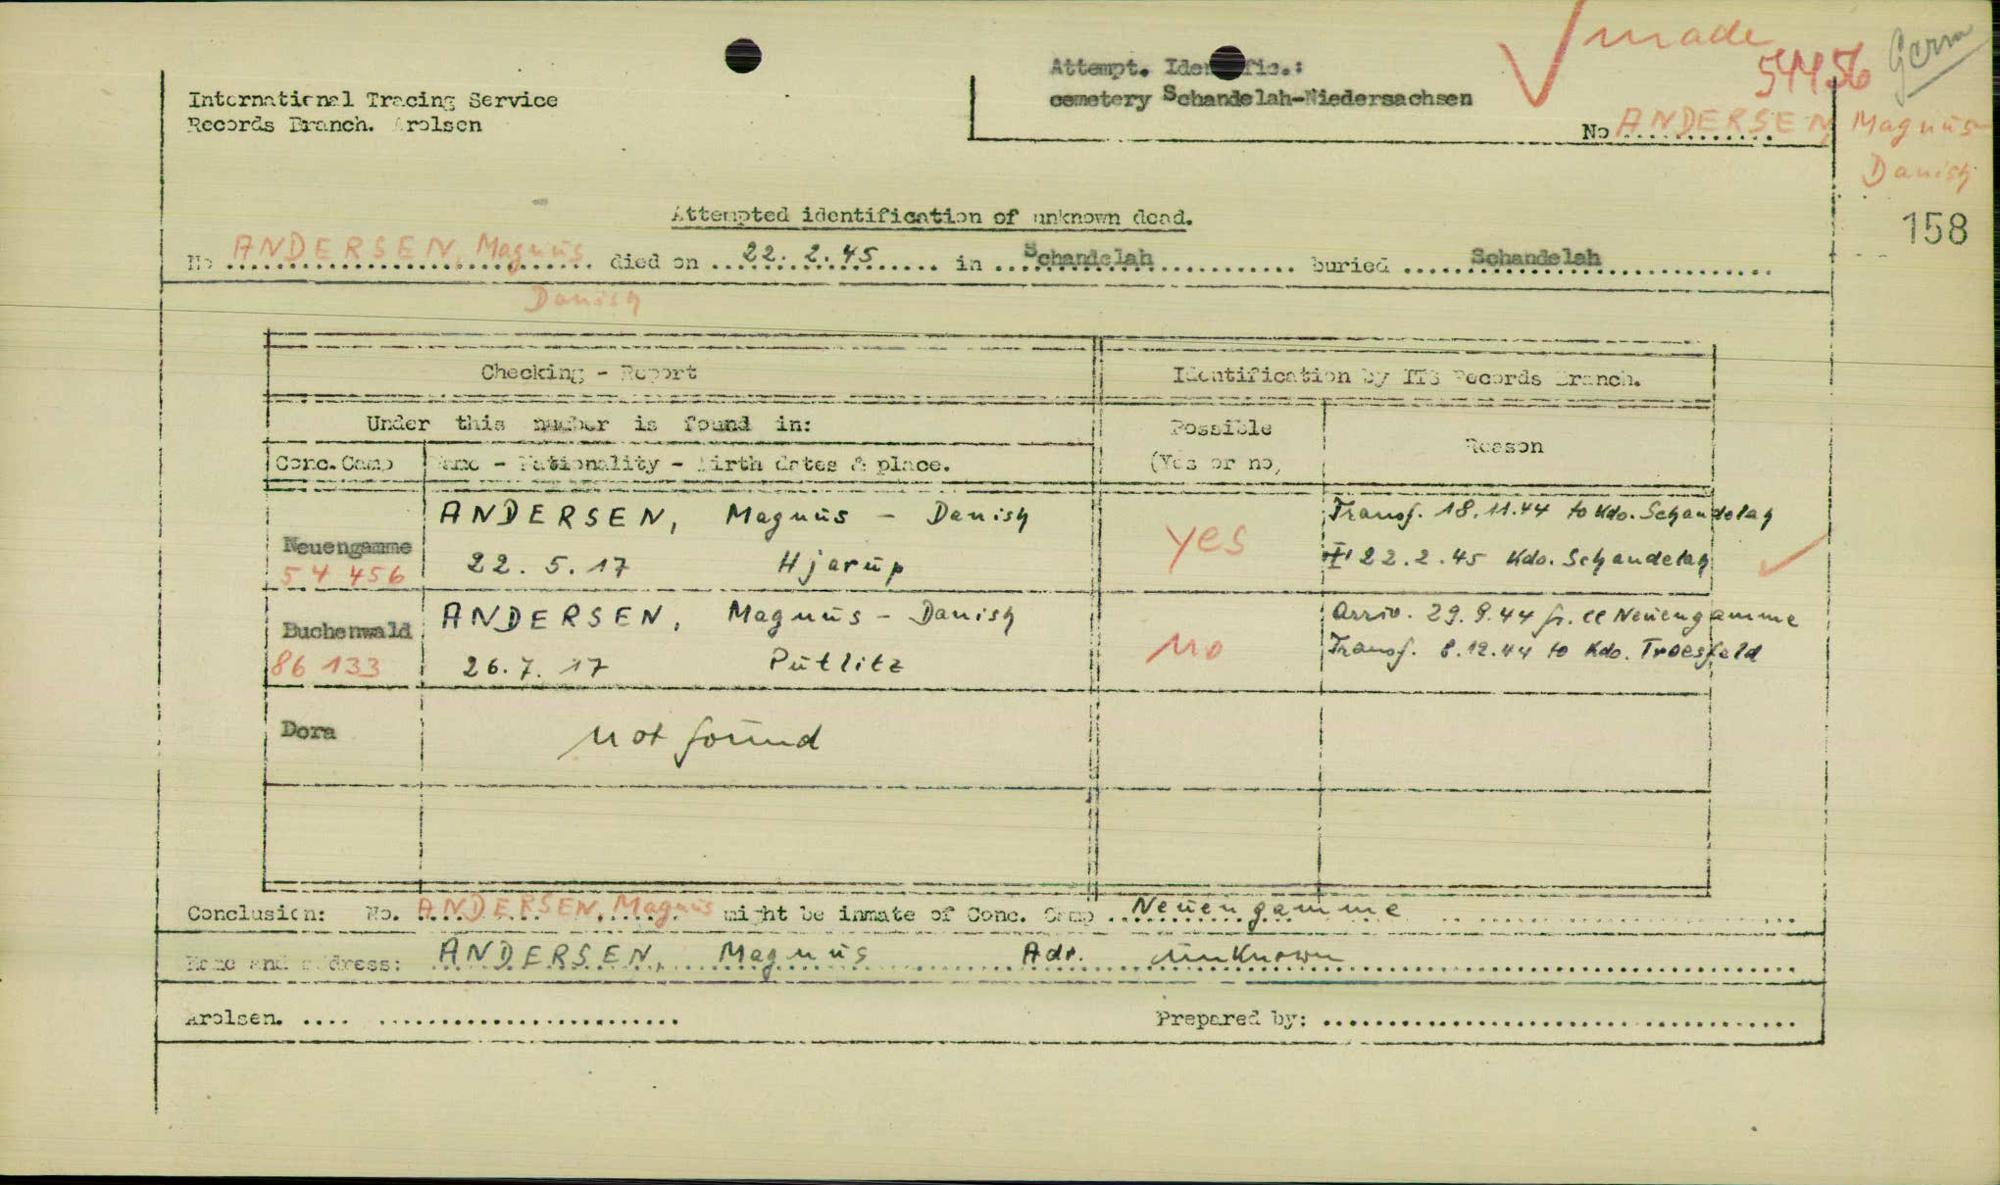 made
54456
Germ
Attempt. Identific.:
cemetery Schandelah-Niedersachsen
International Tracing Service
Records Branch. Arolsen
No ANDERSEN, Magnus
Danish
158
Attempted identification of unknown dead.
No ANDERSEN, Magnus died on 22. 2. 45 in Schandelah buried Schandelah
Danish
Checking - Report
Identification by ITS Records Branch.
Under this number is found in:
Possible
(Yes or no)
Reason
Conc. Camp
Name - Nationality - Birth dates & place.
Neuengamme
54 456
ANDERSEN, Magnus - Danish
22. 5. 17 Hjarup
yes
Transf. 18.11.44 to Kdo. Schandelah
22.2.45 Kdo. Schandelah
Buchenwald
86 133
ANDERSEN, Magnus - Danish
26. 7. 17 Putlitz
no
Arriv. 29.9.44 fr. CC Neuengamme
Transf. 8.12.44 to Kdo. Troesfeld
Dora
not found
Conclusion: No. ANDERSEN, Magnus might be inmate of Conc. Camp Neuengamme
Name and address: ANDERSEN, Magnus Adr. unknown
Arolsen.
Prepared by: